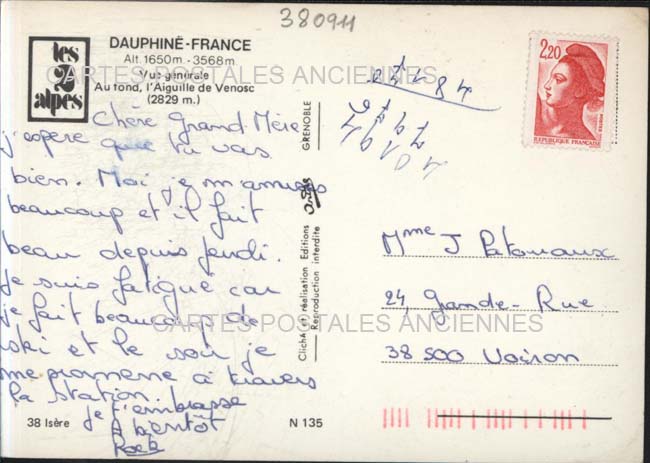 380911
les
2
alpes
DAUPHINÉ-FRANCE
Alt. 1650m - 3568m
Vue générale
Au fond, l'Aiguille de Venosc
(2829 m.)
CARTES POSTALES ANCIENNES
Chère Grand Mère
j'espère que tu vas
bien. Moi je m'amuse
beaucoup et il fait
beau depuis jeudi.
Je suis fatigué car
je fait beaucoup de
ski et le soir je
me promène à travers
la station.
je t'embrasse
A bientôt
38 Isère
N 135
GRENOBLE
Cliché et réalisation Editions
Reproduction interdite
2,20
POSTES
REPUBLIQUE FRANÇAISE
Mme J
24, Grande-Rue
38 500 Voiron
CARTES POSTALES ANCIENNES